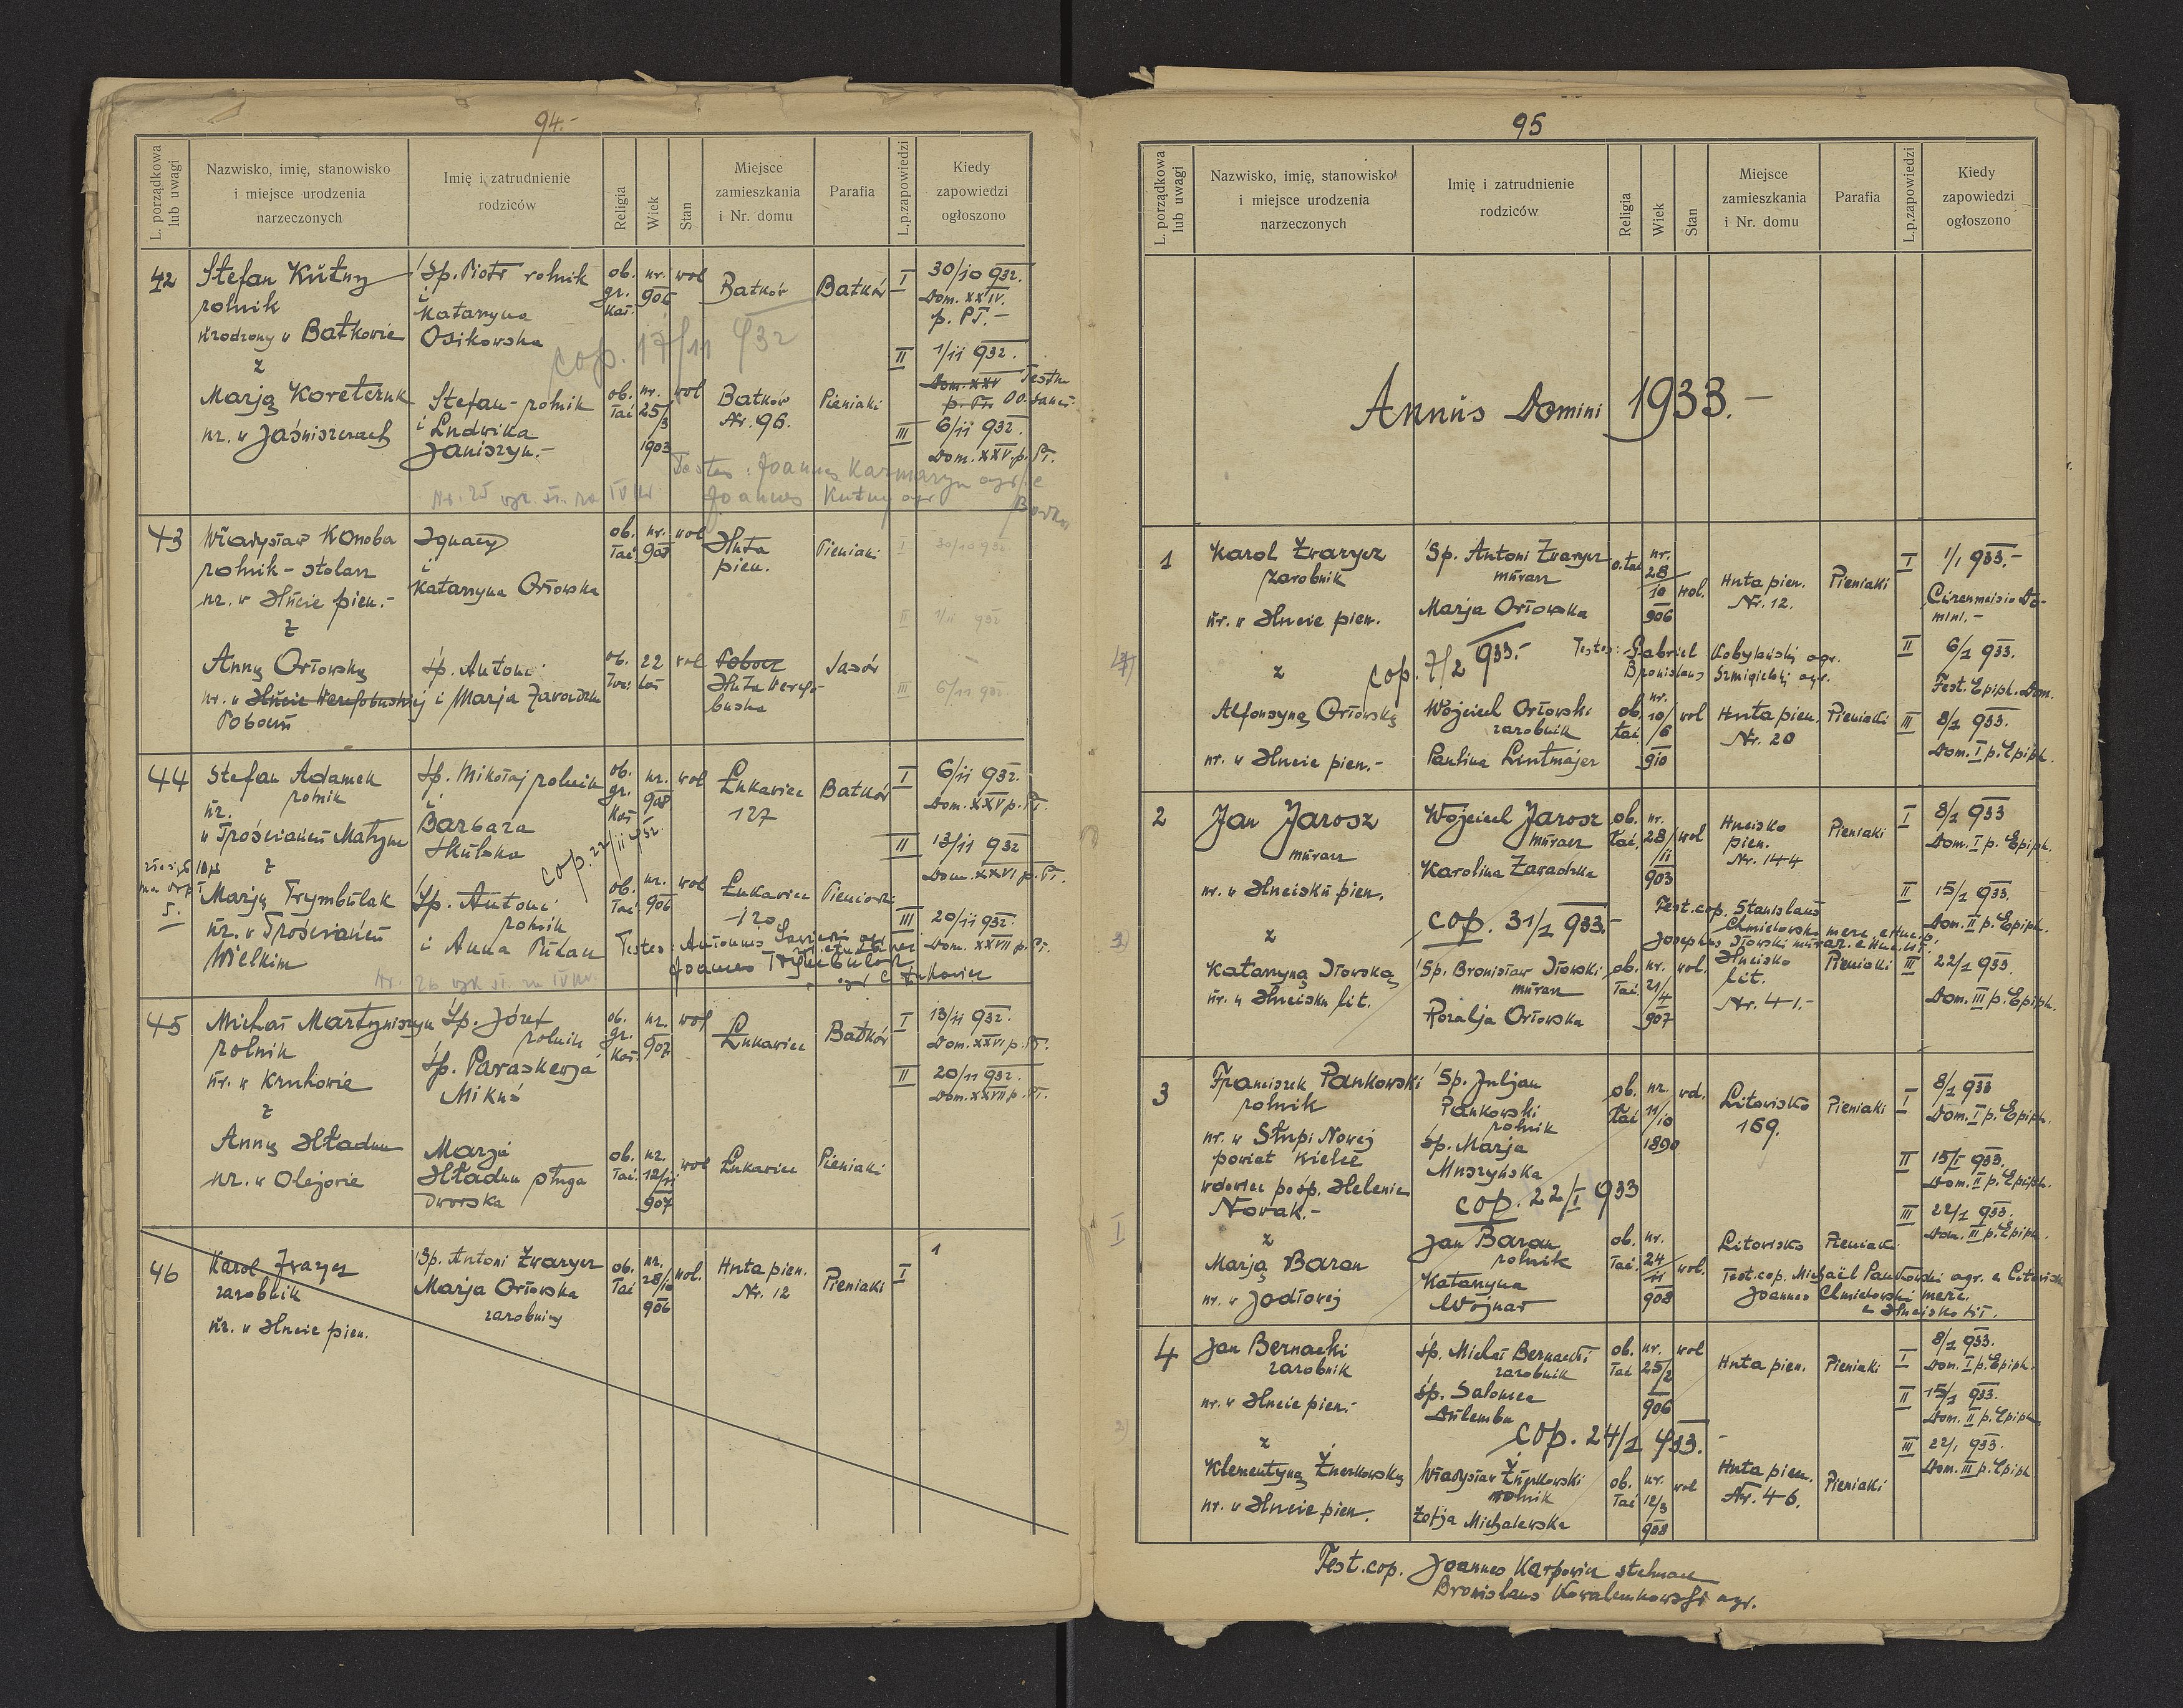 94.-
L. porządkowa lub uwagi
Nazwisko, imię, stanowisko i miejsce urodzenia narzeczonych
Imię i zatrudnienie rodziców
Religia
Wiek
Stan
Miejsce zamieszkania i Nr. domu
Parafia
L.p.zapowiedzi
Kiedy zapowiedzi ogłoszono
42
Stefan Kutny
rolnik
urodzony w Batkowie
z
Marją Koretczuk
ur. w Jaśniszczach
Śp. Piotr rolnik
i
Katarzyna
Osikowska
Stefan - rolnik
i Ludwika
Janiszyn.-
ob. gr. kat.
ur. 906
wol
Batków
Batków
cop. 17/11 932
ob. łać
ur. 25/3 1903
wol
Batków
Nr. 96.
Pieniaki
I 30/10 932.
Dom. XXIV.
p. PT.-
II 1/11 932.
III 6/11 932.
Dom. XXV. p. PT.
Testes: Joannes
Joannes Kutny agr
43
Władysław Konoba
rolnik - stolarz
ur. w Hucie pien.-
z
Anną Orłowską
ur. w Hucie
Ignacy
i
Katarzyna Orłowska
śp. Antoni
i Marja Zawadzka
ob. łać
ur. 907
wol
Huta
pien.
Pieniaki
ob.
22
wol
Huta
Jasów
I 30/10 932.
II 1/11 932
III 6/11 932.
44
Stefan Adamek
rolnik
ur.
w Trościańcu Małym
z
Marją Trymbulak
ur. w Trościańcu
Wielkim
Śp. Mikołaj rolnik
i
Barbara
Skulska
cop. 22/11 932.
Śp. Antoni
rolnik
i Anna
ob. gr. kat
ur. 908
wol
Łukawiec
127
Batków
ob. łać
ur. 906
wol
Łukawiec
120
I 6/11 932.
Dom. XXV p. PT.
II 13/11 932
Dom. XXVI p. PT.
III 20/11 932.
Dom. XXVII p. PT.
Testes: Antonius
Joannes Trymbulak
45
Michał Martyniszyn
rolnik
ur. w Kruhowie
z
Anną Hładun
ur. w Olejowie
Śp. Józef
rolnik
Śp. Paraskewja
Mikuś
Marja
Hładun sługa
dworska
ob. gr. kat.
ur. 907
wol
Łukawiec
Batków
ob. łać.
ur. 12/11 907
wol
Łukawiec
Pieniaki
I 13/11 932.
Dom. XXVI p. PT.
II 20/11 932.
Dom. XXVII p. PT.
46
Karol Zwarycz
zarobnik
ur. w Hucie pien.
Śp. Antoni Zwarycz
Marja Orłowska
zarobnicy
ob. łać
ur. 28/10 906
wol.
Huta pien.
Nr. 12
Pieniaki
I
1
95
L. porządkowa lub uwagi
Nazwisko, imię, stanowisko i miejsce urodzenia narzeczonych
Imię i zatrudnienie rodziców
Religia
Wiek
Stan
Miejsce zamieszkania i Nr. domu
Parafia
L.p.zapowiedzi
Kiedy zapowiedzi ogłoszono
Annus Domini 1933.-
1
Karol Zwarycz
zarobnik
ur. w Hucie pien.
z
Alfonsyną Orłowską
ur. w Hucie pien.-
Śp. Antoni Zwarycz
murarz
Marja Orłowska
cop. 7/2 933.-
Wojciech Orłowski
zarobnik
Paulina Lintmajer
o. łać
ur. 28/10 906
wol.
Huta pien.
Nr. 12.
Pieniaki
Testes: Gabriel Kobylański agr.
Bronislaus Szmigielski agr.
ob. łać
ur. 10/6 910
wol
Huta pien.
Nr. 20
Pieniaki
I 1/1 933.-
Circumcisio Do-
mini.-
II 6/1 933.
Fest. Epiph. Dom.
III 8/1 933.
Dom. I p. Epiph.
2
Jan Jarosz
murarz
ur. w Hucisku pien.
z
Katarzyną Iłowską
ur. w Hucisku lit.
Wojciech Jarosz
murarz
Karolina Zawadzka
cop. 31/1 933.-
Śp. Bronisław Iłowski
murarz
Rozalja Orłowska
ob. łać.
ur. 28/11 903
wol
Hucisko
pien.
Nr. 144
Pieniaki
Test. cop. Stanislaus
Chmielowski
Josephus Iłowski murar.
ob. łać.
ur. 21/4 907
wol.
Hucisko
lit.
Nr. 41.-
Pieniaki
I 8/1 933
Dom. I p. Epiph.
II 15/1 933.
Dom. II p. Epiph.
III 22/1 933.
Dom. III p. Epiph.
3
Franciszek Pankowski
rolnik
ur. w Słupi Nowej
powiat Kielce
wdowiec po śp. Helenie
Nowak.-
z
Marją Baran
ur. w Jodłowej
Śp. Juljan
Pankowski
rolnik
śp. Marja
Muszyńska
cop. 22/I 933
Jan Baran
rolnik
Katarzyna
Wojnar
ob. łać
ur. 11/10 1890
wd.
Litowisko
169.
Pieniaki
ob. łać.
ur. 24/11 908
wol.
Litowisko
Pieniaki
Test. cop. Michaël Pankowski agr. e Litowisk
Joannes Chmielowski merc.
e Hucisko lit.
I 8/1 933
Dom. I p. Epiph.
II 15/I 933.
Dom. II p. Epiph.
III 22/1 933.
Dom. III p. Epiph.
4
Jan Bernacki
zarobnik
ur. w Hucie pien.-
z
Klementyną Żurkowską
ur. w Hucie pien.
śp. Michał Bernacki
zarobnik
śp. Salomea
Dulemba
cop. 24/1 933.-
Władysław Żurkowski
rolnik
Zofja Michalewska
ob. łać
ur. 25/2 906
wol
Huta pien.
Pieniaki
ob. łać
ur. 12/3 908
wol
Huta pien.
Nr. 46.
Pieniaki
I 8/1 933.
Dom. I p. Epiph.
II 15/1 933.
Dom. II p. Epiph.
III 22/1 933.
Dom. III p. Epiph
Test. cop. Joannes Karpowicz
Bronislaus Kowalenkowski agr.